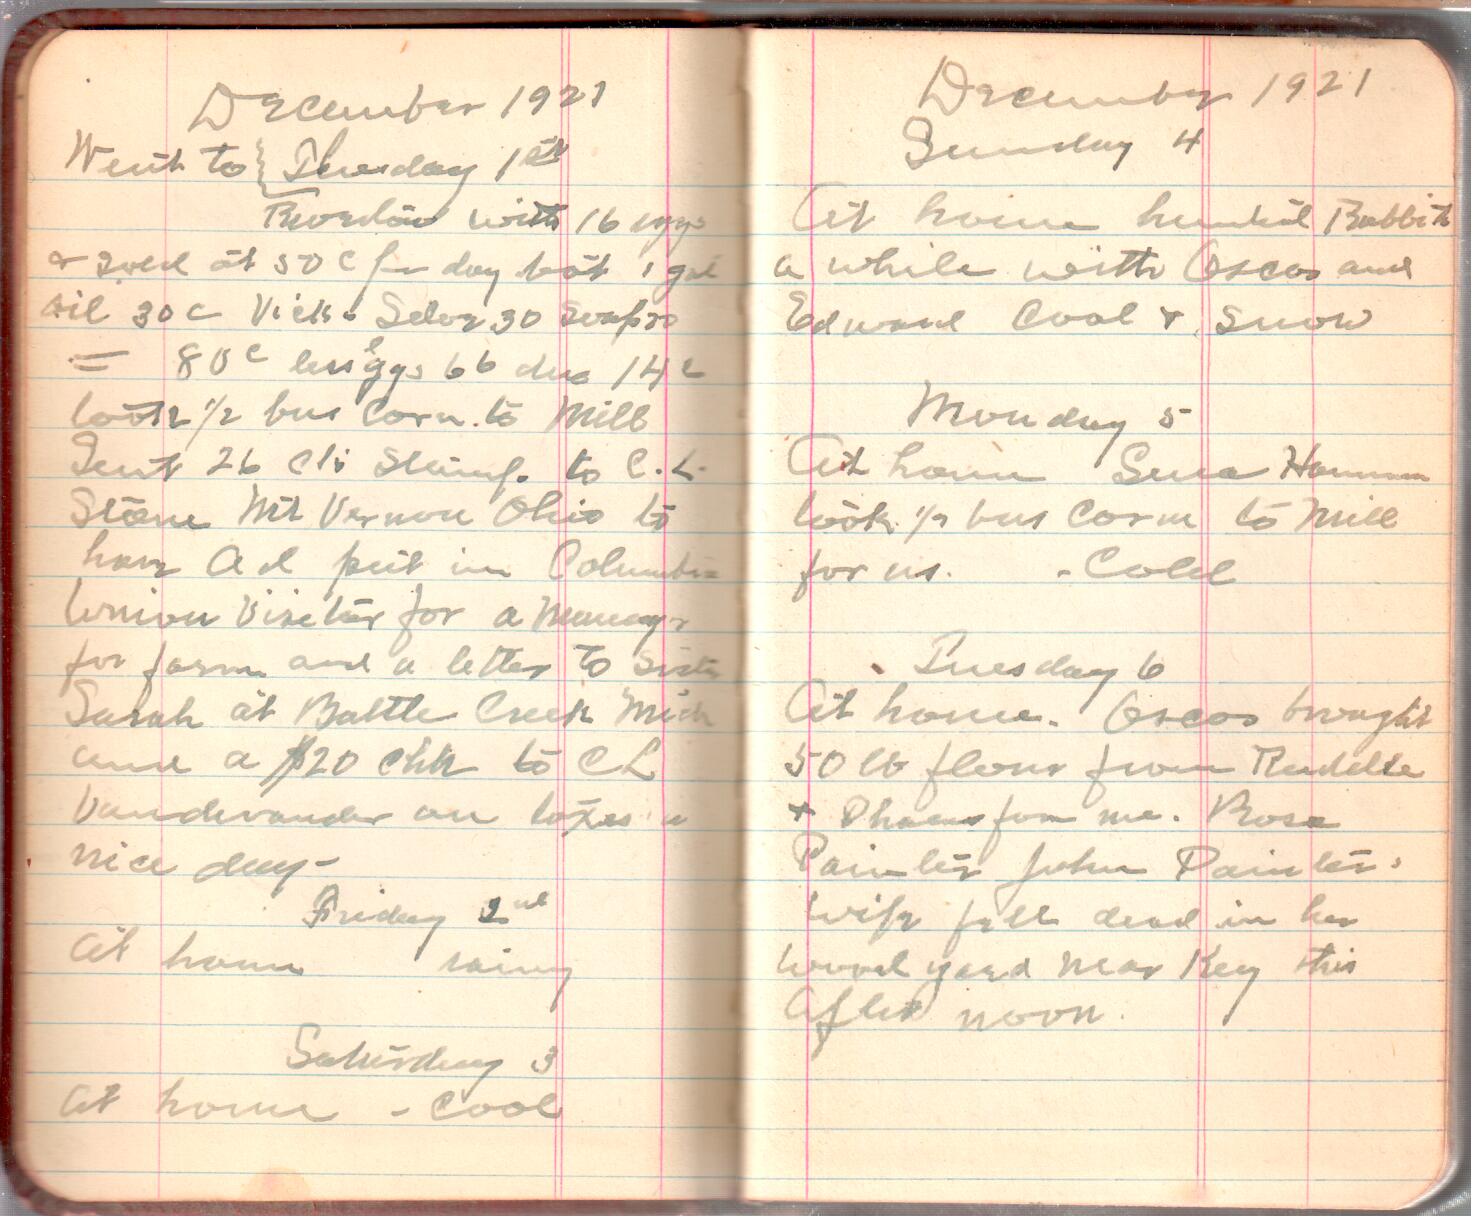 December 1921
Went to { Thursday 1st
with 16 eggs
& sold at 50c for doz bot 1 gal
oil 30c Vicks Salve 30 Soap 20
= 80c less eggs 66 due 14c
took 1/2 bus Corn to Mill
Sent 26 cts Stamp. to C. L.
Stone Mt Vernon Ohio to
have Ad put in Columbia
Union Visitor for a Manager
for farm and a letter to Sister
Sarah at Battle Creek Mich
and a $20 chk to CL
Vandevander on taxes a
nice day -
Friday 2nd
At home rainy
Saturday 3
At home - Cool
December 1921
Sunday 4
At home hunted Rabbits
a while with Oscar and
Edward Cool & Snow
Monday 5
At home
took 1/2 bus Corn to Mill
for us. - Cold
Tuesday 6
At home. Oscar brought
50 lb flour from
& for me. Rosa
Painter John Painters
wife fell dead in her
wood yard near Key this
After noon.